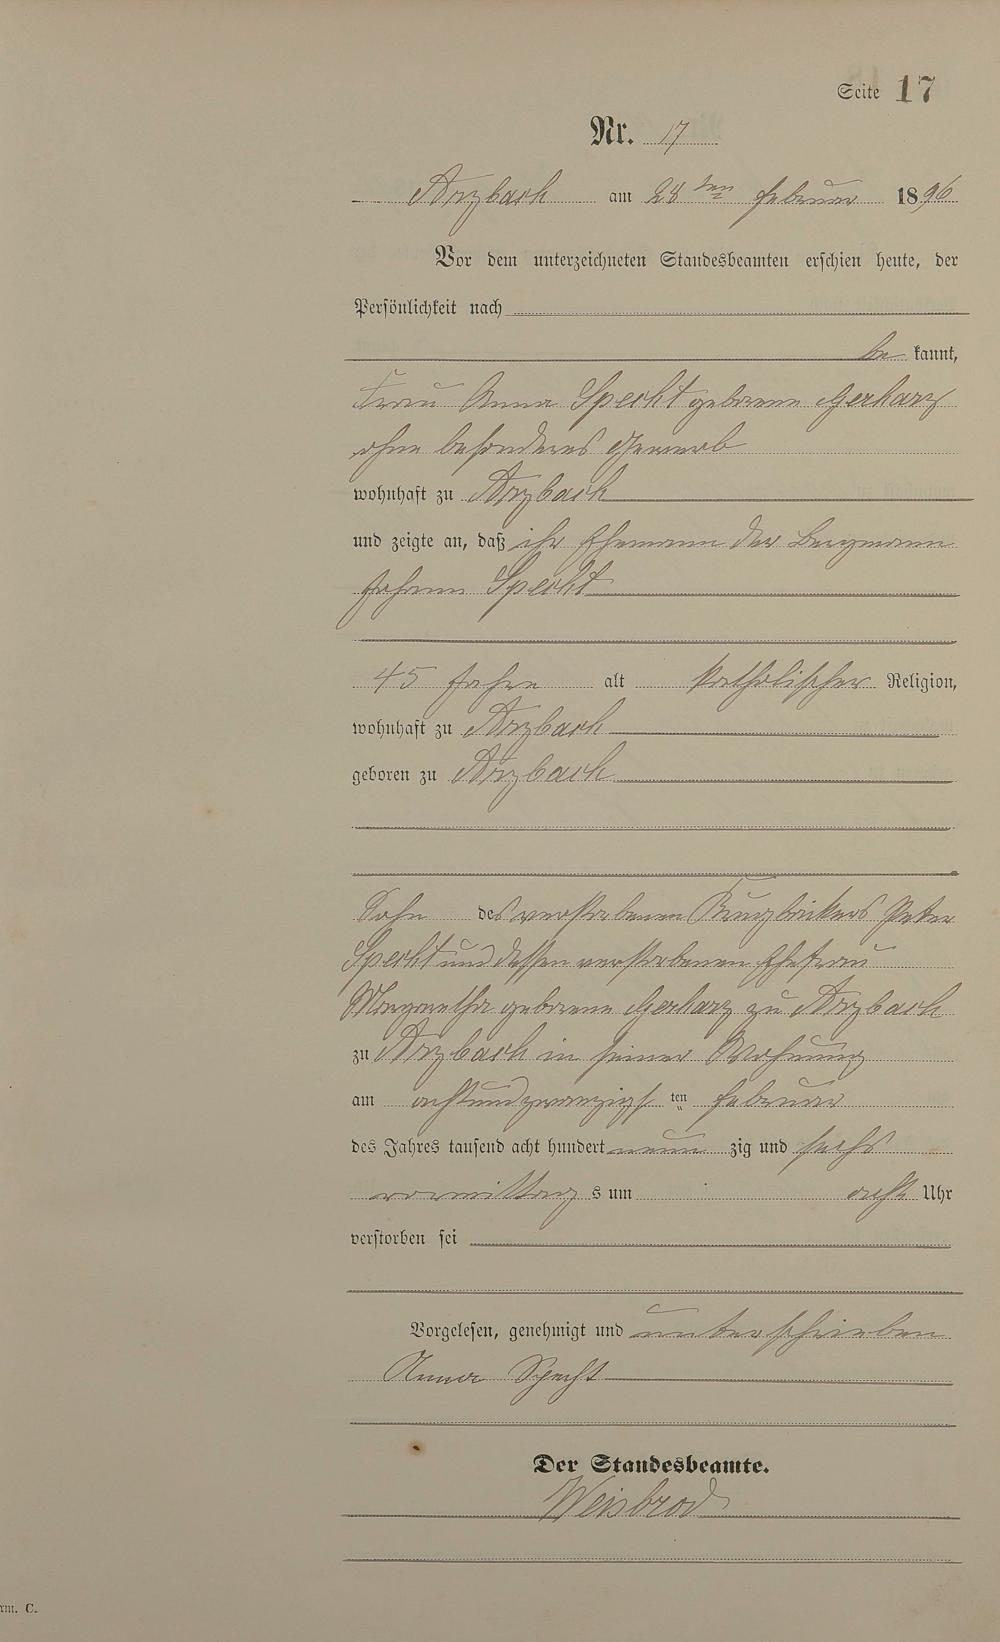 Seite 17
Nr. 17
Arzbach am 28ten Februar 1896
Vor dem unterzeichneten Standesbeamten erschien heute, der
Persönlichkeit nach
be kannt,
Frau Anna Specht geborene Gerharz
ohne besonderes Gewerb
wohnhaft zu Arzbach
und zeigte an, daß ihr Ehemann der Bergmann
Johann Specht
45 Jahre alt katholischer Religion,
wohnhaft zu Arzbach
geboren zu Arzbach
Sohn des verstorbenen Peter
Specht und dessen verstorbenen Ehefrau
Margaretha geborene Gerharz zu Arzbach
zu Arzbach in seiner Wohnung
am achtundzwanzigs ten Februar
des Jahres tausend acht hundert neun zig und sechs
vormittag s um acht Uhr
verstorben sei
Vorgelesen, genehmigt und unterschrieben
Anna Specht
Der Standesbeamte.
Weisbrod
C.